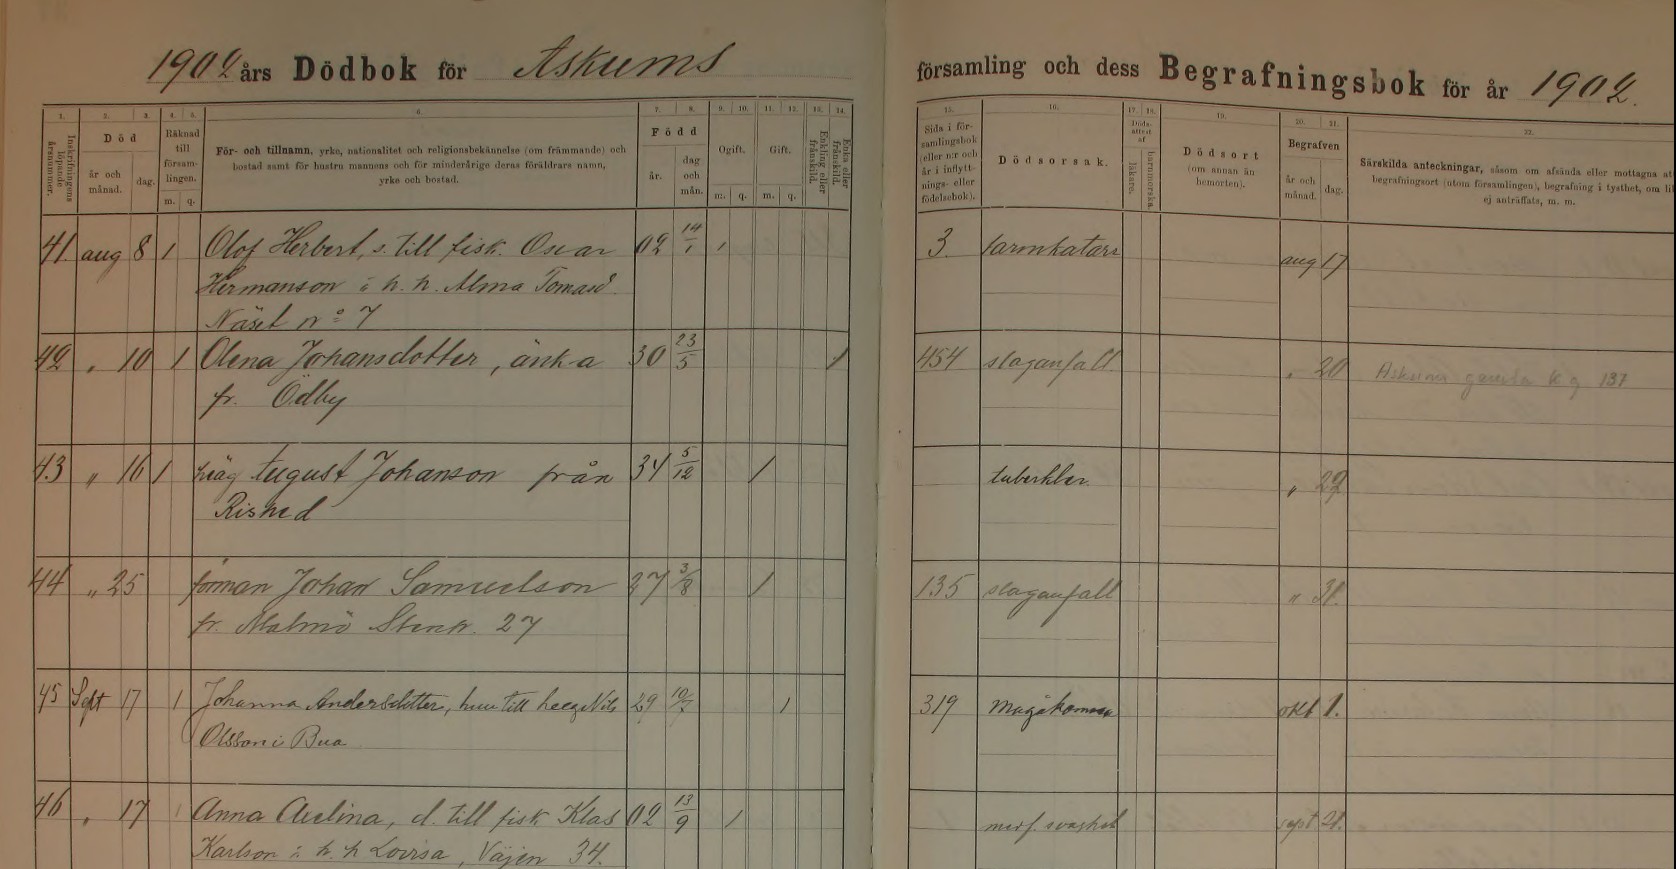 1902 års Dödbok för Askums
församling och dess Begrafningsbok för år 1902.
1. 2. 3. 4. 5. 6. 7. 8. 9. 10. 11. 12. 13. 14.
Inskrifningens löpande årsnummer.
Död
år och månad. dag.
Räknad till församlingen.
m. q.
För- och tillnamn, yrke, nationalitet och religionsbekännelse (om främmande) och
bostad samt för hustru mannens och för minderårige deras föräldrars namn,
yrke och bostad.
Född
år. dag och mån.
Ogift. Gift.
m. q. m. q.
Enkling eller frånskild.
Enka eller frånskild.
15. 16. 17. 18. 19. 20. 21. 22.
Sida i församlingsbok (eller n:r och år i inflyttnings- eller födelsebok).
Dödsorsak.
Dödsattest af
läkare. barnmorska.
Dödsort
(om annan än hemorten).
Begrafven
år och månad. dag.
Särskilda anteckningar, såsom om afsända eller mottagna
begrafningsort (utom församlingen), begrafning i tysthet, om
ej anträffats, m. m.
41 aug 8 1 Olof Herbert, s. till fisk. Oscar 02 14/1 1 3. tarmkatarr aug 17
Hermanson o. h. h. Alma Tomasd.
Näset No 7
42 " 10 1 Olena Johansdotter, änka 30 23/5 1 454 slaganfall " 20 Askums gamla kg 137
fr. Ödby
43 " 16 1 häg August Johanson från 34 5/12 1 tuberkler. " 22
Rished
44 " 25 förman Johan Samuelson 27 3/8 1 135 slaganfall " 31.
fr. Malmö Stenh. 27
45 Sept 17 1 Johanna Andersdotter, hu till Nils 29 10/7 1 319 okt 1.
Olsson i Bua
46 " 17 1 Anna Avelina, d. till fisk Klas 02 13/9 1 medf. svaghet sept 21.
Karlson o. h. h Lovisa, Väjen 34.